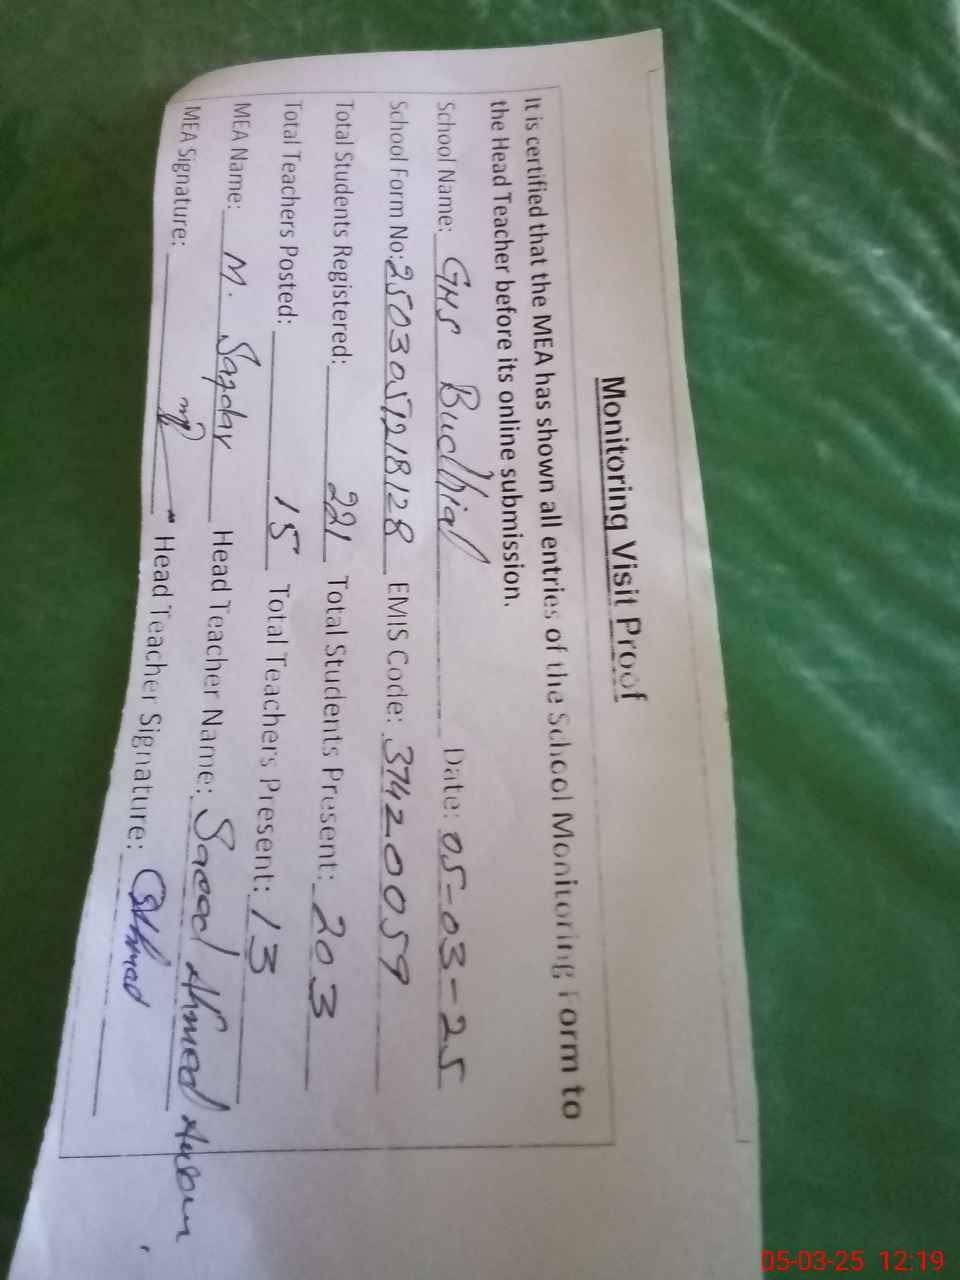 Monitoring Visit Proof
It is certified that the MEA has shown all entries of the School Monitoring Form to
the Head Teacher before its online submission.
School Name: GHS Buchial Date: 05-03-25
School Form No: 2503057218128 EMIS Code: 37420059
Total Students Registered: 221 Total Students Present: 203
Total Teachers Posted: 15 Total Teachers Present: 13
MEA Name: M. Head Teacher Name: Saeed Ahmed
MEA Signature: Head Teacher Signature:
05-03-25 12:19